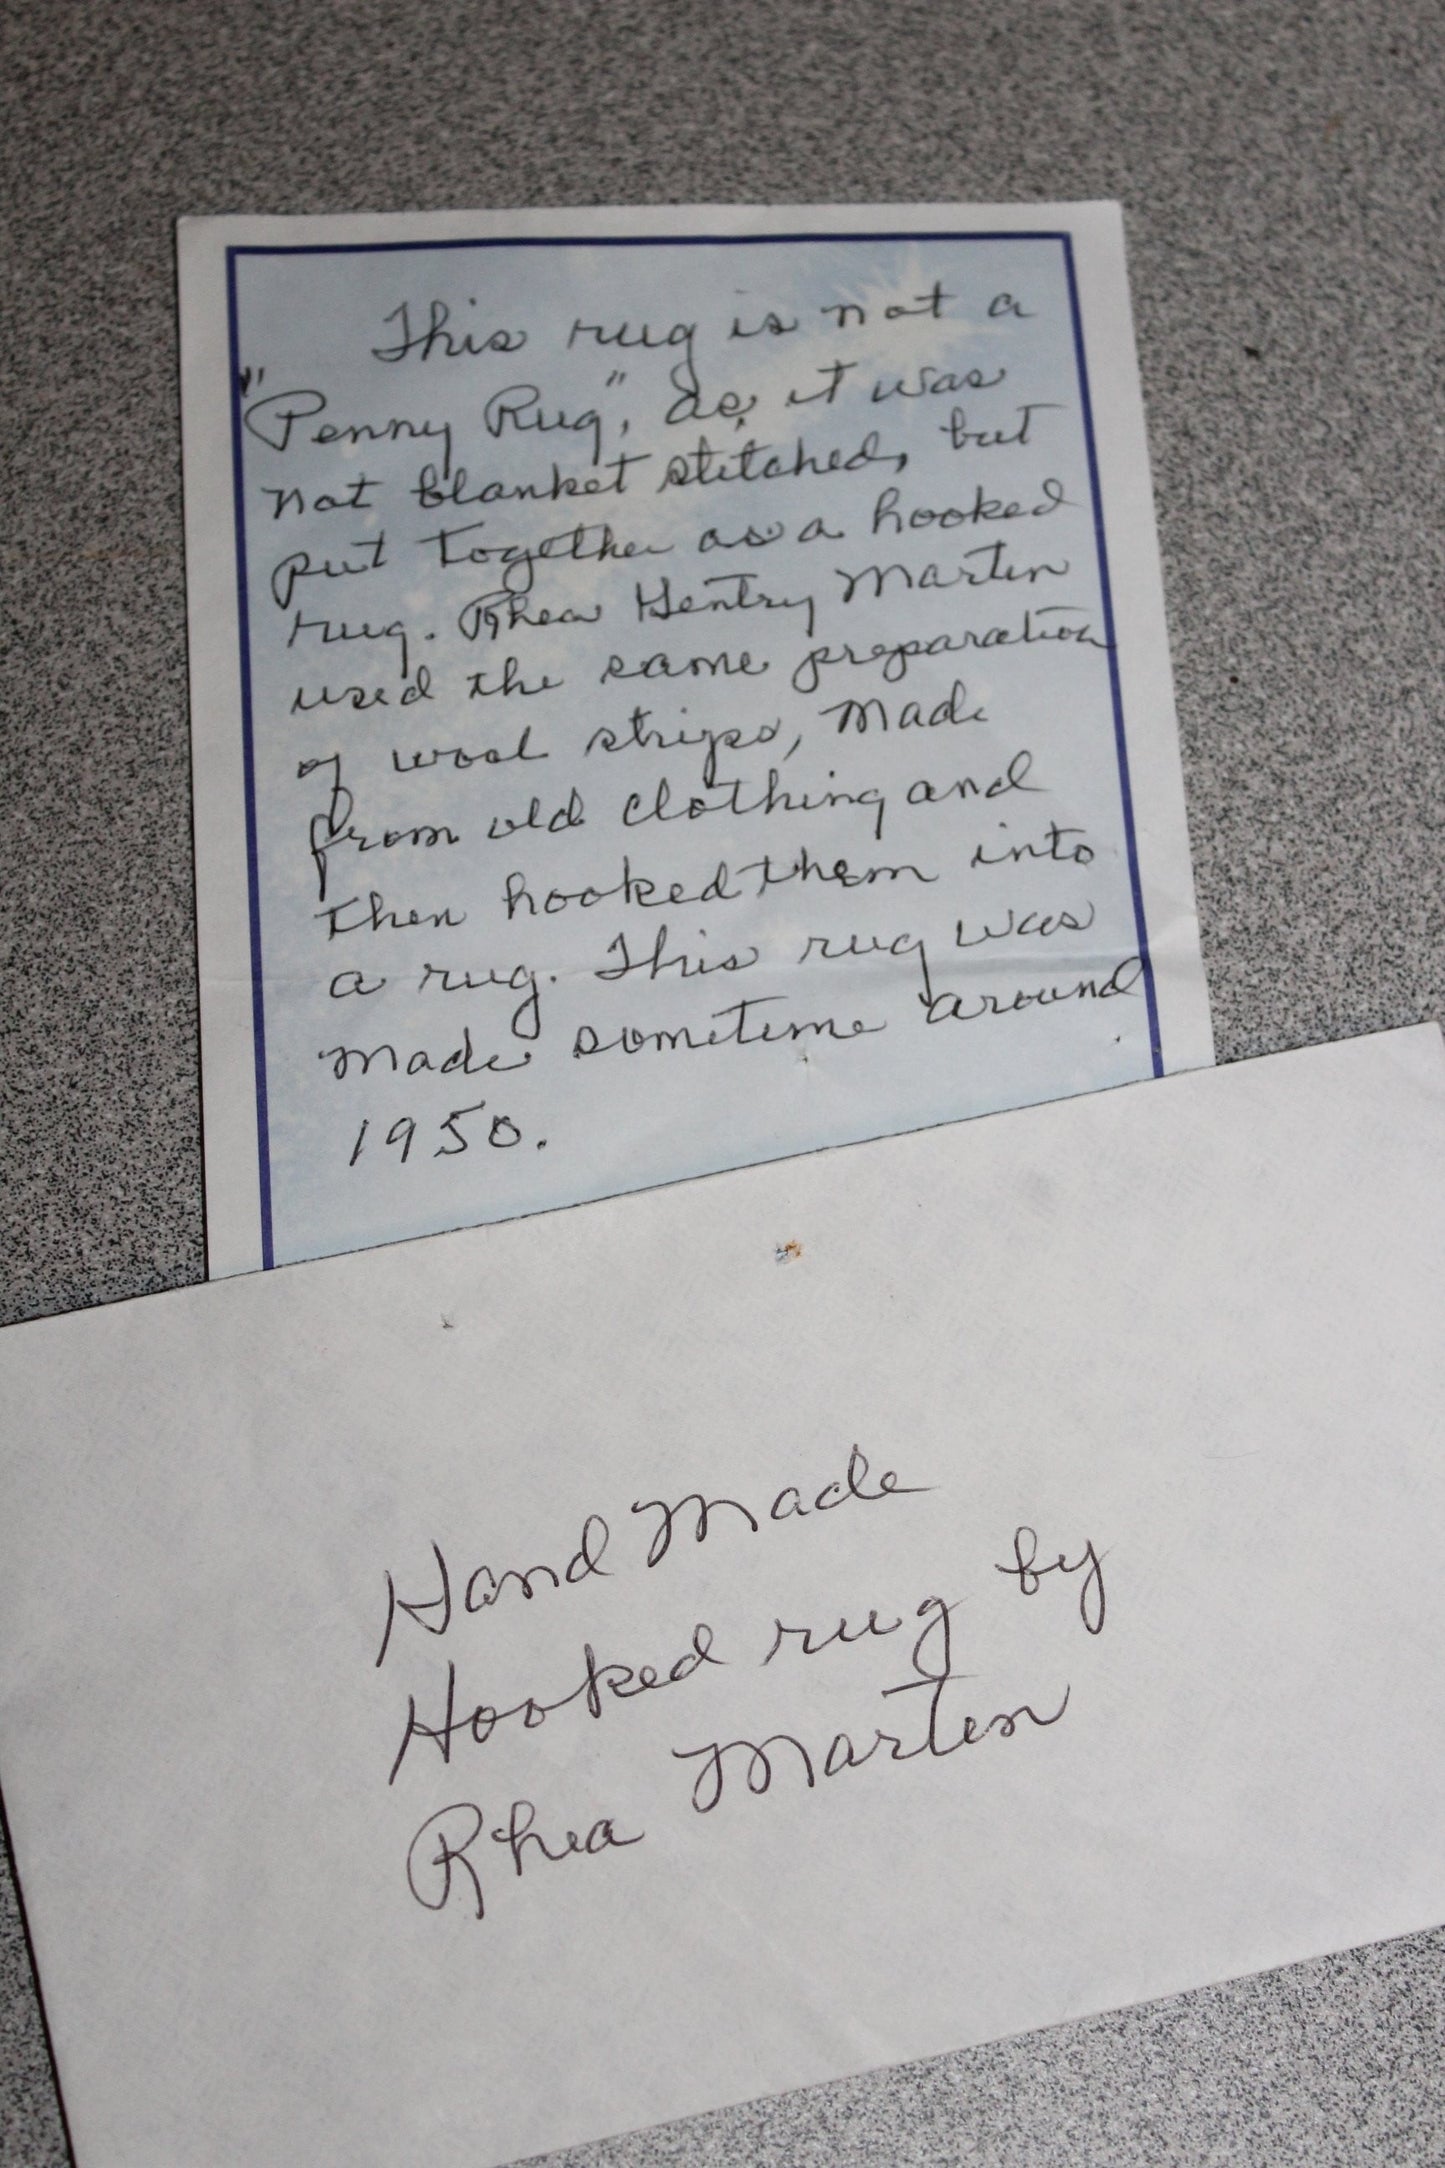 This rug is not a
"Penny Rug", as it was
not blanket stitched, but
put together as a hooked
rug. Rhea Hentry Martin
used the same preparation
of wool strips, made
from old clothing and
then hooked them into
a rug. This rug was
made sometime around
1950.
Hand Made
Hooked rug by
Rhea Martin